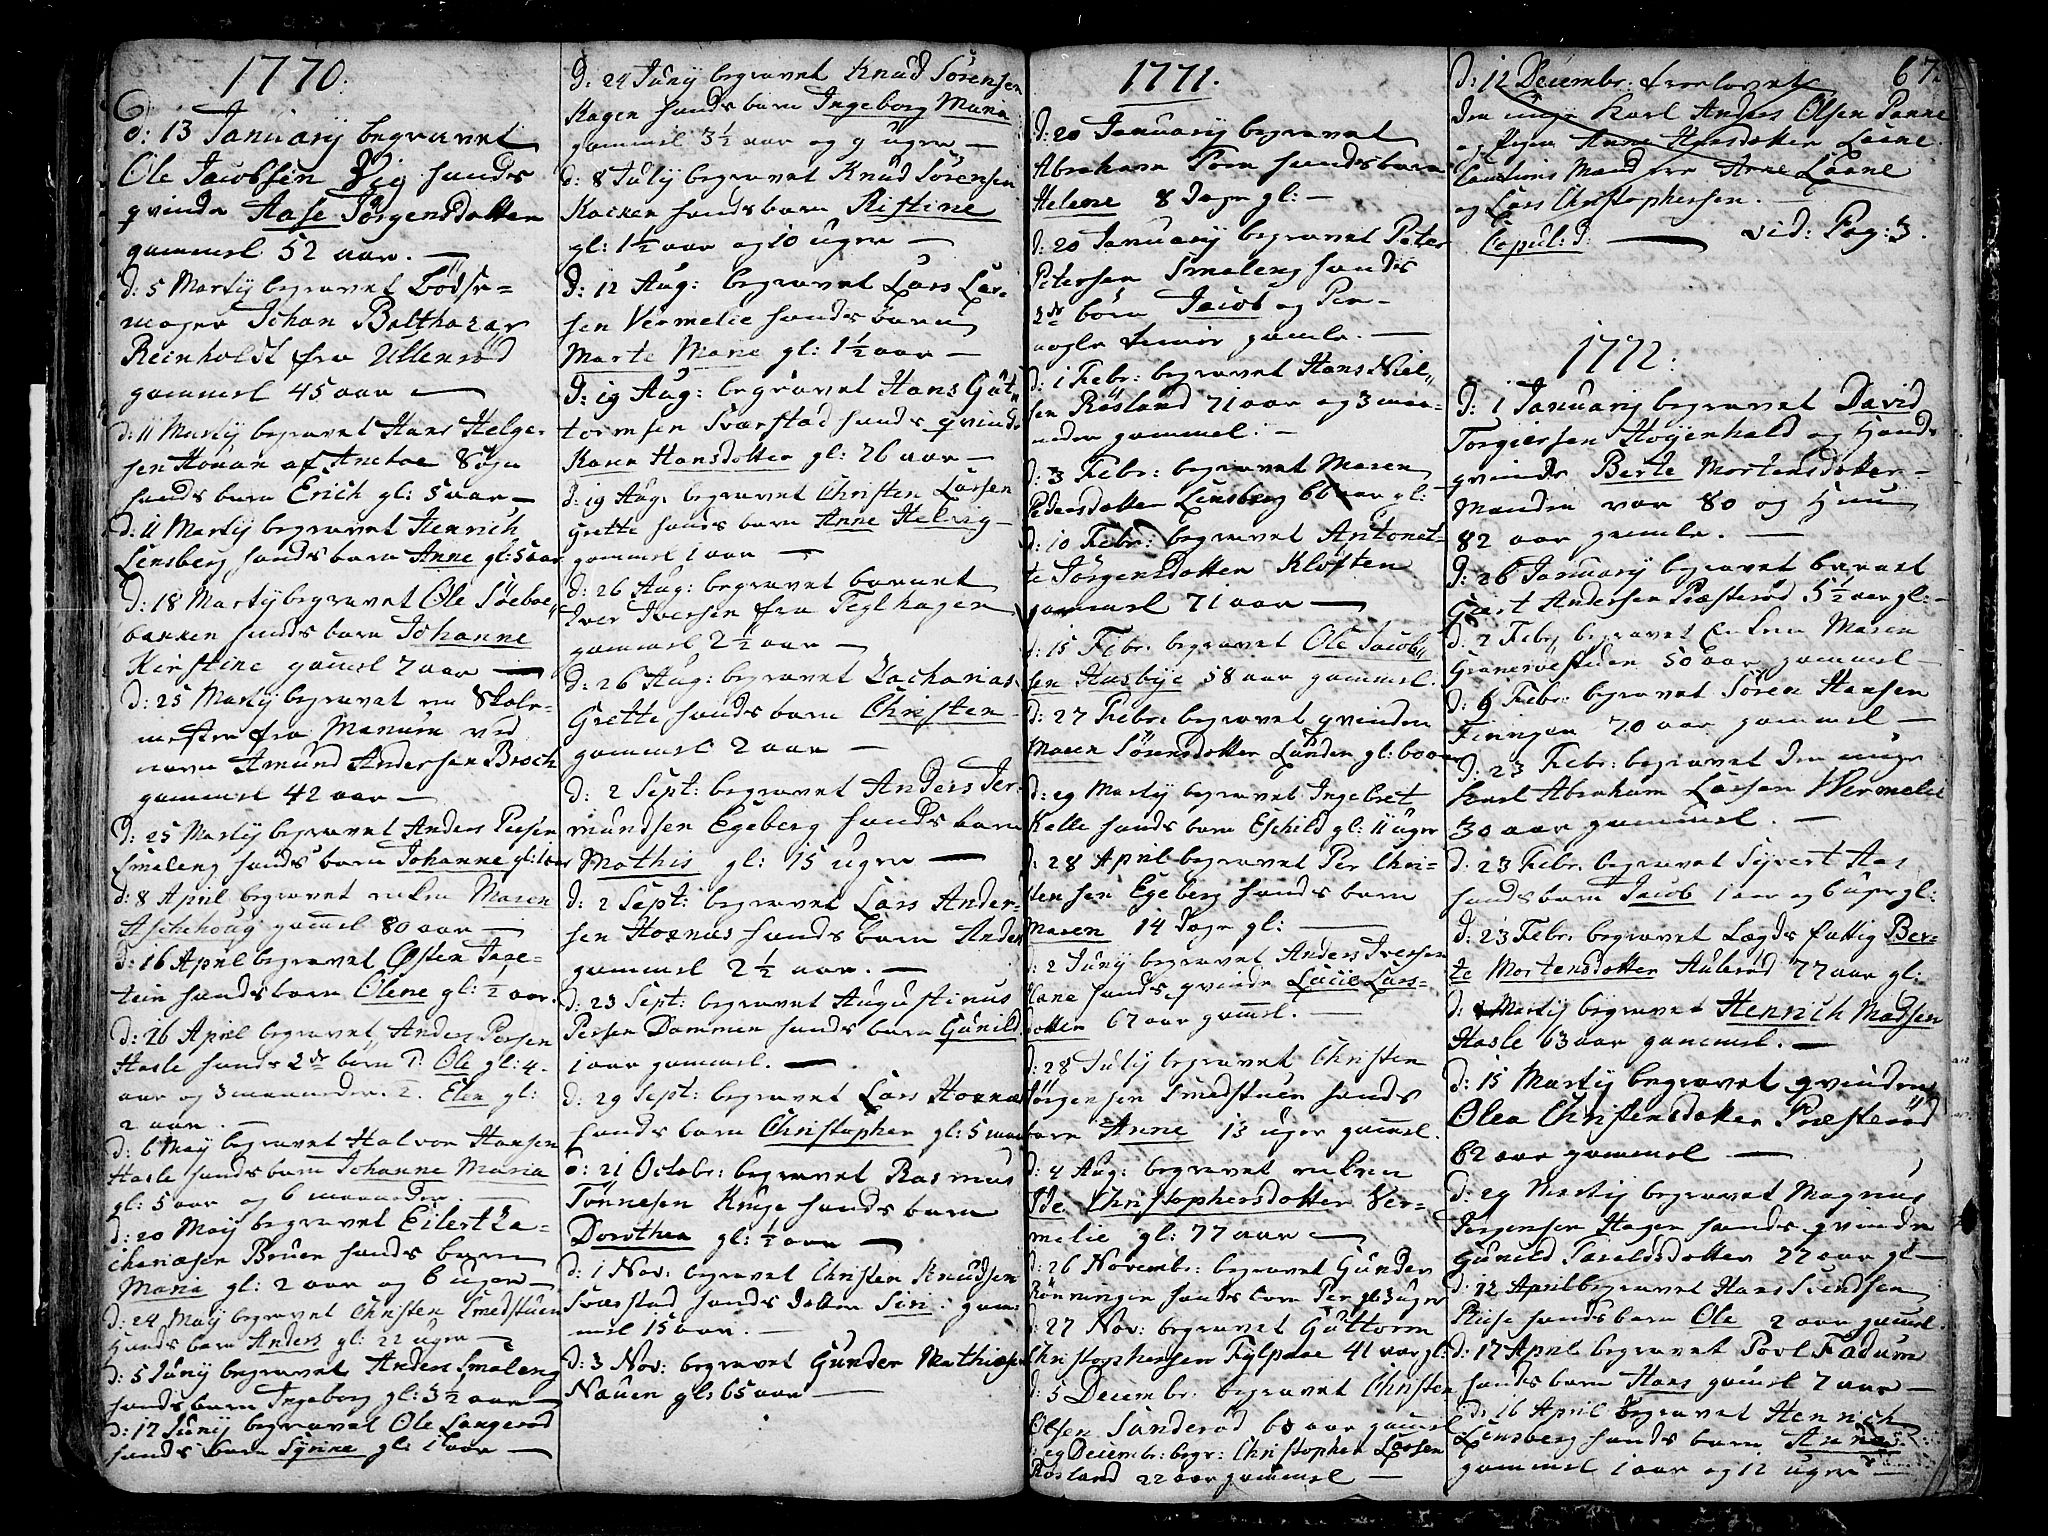 1770.
d: 13 Januarij begravet
Ole Jacobsen Vig hands
qvinde Aase Jørgensdotter
gammel 52 aar. —
d: 5 Martij begravet Bødse=
mager Johan Balthazar
Reinholdt fra Ullerød
gammel 45 aar —
d: 11 Martij begravet Hans Helge-
sen af Sogn
hands barn Erich gl: 5 aar —
d: 11 Martij begravet Henrich
Lensberg hands barn Anne gl: 5 aar
d: 18 Martij begravet Ole Søeboe
backen hands barn Johanne
Kirstine gamel 7 aar —
d: 25 Martij begravet en Skole-
mester fra Manum ved
navn Amund Andersen Broch
gammel 42 aar —
d: 25 Martij begravet Anders Persen
Smaleng hands barn Johanne gl: 1 aar
d: 8 April begravet enken Maren
Aschehoug gamel 80 aar —
d: 16 April begravet Osten Tase-
tein hands barn Olene gl: ½ aar.
d: 26 April begravet Anders Persen
Hasle hands 2de børn 1. Ole gl: 4.
aar og 3 maaneder. 2. Elen gl:
2 aar. —
d: 6 Maij begravet Halvor Hansen
Hasle hands barn Johanne Maria
gl: 5 aar og 6 maaneder. —
d: 20 Maij begravet Eilert Za-
chariasen Bruen hands barn
Maria gl: 2 aar og 6 uger —
d: 24 Maij begravet Christen Smedstuen
hands barn Anders gl: 22 uger —
d: 5 Junij begravet Anders Smaleng
hands barn Ingeborg gl: 3½ aar —
d: 17 Junij begravet Ole Langerød
hands barn Synne gl: 1 aar —
d: 24 Junij begravet Knud Sørensen
Hagen hands barn Ingeborg Maria
gammel 3½ aar og 9 uger —
d: 8 Julij begravet Knud Sørensen
Kacken hands barn Kistine
gl: 1½ aar og 10 uger —
d: 12 Aug: begravet Lars Lar-
sen Vermelie hands barn
Marte Marie gl: 1½ aar —
d: 19 Aug: begravet Hans Gut-
tormsen Sværstad hands qvinde
Karen Hansdotter gl: 26 aar —
d: 19 Aug: begravet Christen Larsen
Grette hands barn Anne Helvig
gammel 1 aar —
d: 26 Aug: begravet barnet
Iver Iversen fra Teglhagen
gammel 2½ aar —
d: 26 Aug: begravet Zacharias
Grette hands barn Christen
gammel 2 aar —
d: 2 Sept: begravet Anders Ier-
mundsen Egeberg hands barn
Mathis gl: 15 uger —
d: 2 Sept: begravet Lars Ander-
sen Hornæs hands barn Anders
gammel 2½ aar. —
d: 23 Sept: begravet Augustinus
Persen Dammen hands barn Gunild
1 aar gammel. —
d: 29 Sept: begravet Lars Hornæs
hands barn Christopher gl: 5 maan
d: 21 Octobr: begravet Rasmus
Tønnesen Kruse hands barn
Dorothea gl: ½ aar —
d: 1 Nov: begravet Christen Knudsen
Sværstad hands dotter Siri gam-
mel 15 aar. —
d: 3 Nov: begravet Gunder Mathiesen
Nauen gl: 65 aar —
1771.
d: 20 Januarij begravet
Abraham Torn hands barn
Helene 8 Dage gl: —
d: 20 Januarij begravet Peter
Petersen Smaleng hands
2de børn Jacob og Per
nogle timer gamle. —
d: 1 Febr: begravet Hans Niel-
sen Røsland 71 aar og 3 maa-
neder gammel. —
d: 3 Febr: begravet Maren
Pedersdotter Lensberg 66 aar gl:
d: 10 Febr: begravet Antonet-
te Jørgensdotter Kloften
gammel 71 aar —
d: 15 Febr: begravet Ole Jacob-
sen Husbye 58 aar gammel.
d: 27 Febr: begravet qvinden
Maren Sørensdotter Lunden gl: 60 aar
d: 29 Martij begravet Ingebret
Kalle hands barn Eschild gl: 11 uger
d: 28 April begravet Per Chri-
stensen Egeberg hands barn
Maren 14 Dage gl: —
d: 2 Junij begravet Anders Iversen
hands qvinde Lucie Lars-
dotter 67 aar gamel. —
d: 28 Julij begravet Christen
Jørgensen Smedstuen hands
barn Anne 13 uger gamel.
d: 4 Aug: begravet enken
Ide Christophersdotter Ver-
melie gl: 77 aar —
d: 26 Novembr: begravet Gunder
Rønningen hands barn Per gl: 3 uger
d: 27 Nov: begravet Guttorm
Christophersen Fylpaae 41 aar gl:
d: 5 Decembr: begravet Christen
Olsen Sanderød 60 aar gamel
d: 29 Decembr: begr: Christopher Larsen
Røsland 22 aar gammel —
67.
d: 12 Decembr: trolovet
den unge Karl Anders Olsen Panne
og Pigen Anne Hansdotter Laane.
Cautions Mænd ere Arne Laane
og Lars Christophersen. —
Copul: d: — vid: Pag: 3.
1772.
d: 1 Januarij begravet David
Torgiersen Høyenhald og hands
qvinde Berte Mortensdotter.
Manden var 80 og Hun
82 aar gamle. —
d: 26 Januarij begravet barnet
Giert Andersen Præsterød 5½ aar gl: —
d: 2 Febr: begravet Enken Maren
50 aar gammel —
d: 9 Febr: begravet Søren Hansen
70 aar gammel —
d: 23 Febr: begravet den unge
Karl Abraham Larsen Wermelie
30 aar gammel. —
d: 23 Febr. begravet Syvert Aas
hands barn Jacob 1 aar og 6 uger gl:
d: 23 Febr. begravet Lægds fattig Ber-
te Mortensdotter Aulerød 77 aar gl:
d: Martij begravet Henrich Madsen
Hasle 63 aar gammel. —
d: 15 Martij begravet qvinden
Olea Christensdotter Præsterød
62 aar gammel —
d: 29 Martij begravet Magnus
Jørgensen Hagen hands qvinde
Gunild Taraldsdotter 22 aar gl —
d: 12 April begravet Hans Svendsen
Riise hands barn Ole 2 aar gamel.
d: 17 April begravet Povl Fadum
hands barn Hans gamel 7 aar —
d: 16 April begravet Henrich
Lensberg hands barn Anne
gammel 1 aar og 12 uger —